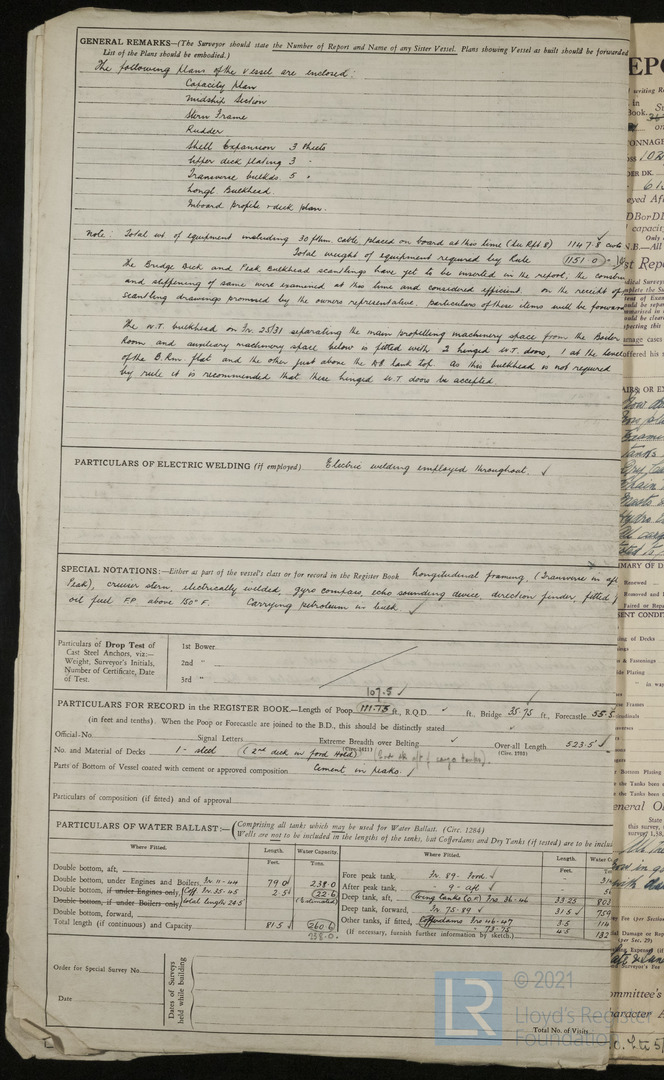 GENERAL REMARKS—(The Surveyor should state the Number of Report and Name of any Sister Vessel. Plans showing Vessel as built should be forwarded
List of the Plans should be embodied.)
The following plans of the vessel are enclosed:
Capacity plan
Midship Section
Stern Frame
Rudder
Shell Expansion 3 sheets
Upper deck plating 3 "
Transverse bulkds. 5 "
Longl Bulkhead.
Inboard profile & deck plan.
Note: Total wt. of equipment including 30 fthm. cable, placed on board at this time (See Rpt 8) 1147.8 cwts
Total weight of equipment required by Rule 1151.0 "
The Bridge Deck and Peak Bulkhead scantlings have yet to be inserted in the report, the
and stiffening of same were examined at this time and considered efficient. On the receipt of
scantling drawings promised by the owners representative, particulars of these items will be
The W.T. bulkhead on Fr. 25/31 separating the main propelling machinery space from the Boiler
Room and auxiliary machinery space below is fitted with 2 hinged W.T. doors, 1 at the level
of the B.Rm. flat and the other just above the WB tank top. As this bulkhead is not required
by rule it is recommended that these hinged W.T doors be accepted
PARTICULARS OF ELECTRIC WELDING (if employed) Electric welding employed throughout. ✓
SPECIAL NOTATIONS:—Either as part of the vessel's class or for record in the Register Book longitudinal framing, (Transverse in aft
Peak), cruiser stern, electrically welded, gyro compass, echo sounding device, direction finder, fitted f
oil fuel F.P above 150° F. Carrying petroleum in bulk ✓
Particulars of Drop Test of
Cast Steel Anchors, viz:—
Weight, Surveyor's Initials,
Number of Certificate, Date
of Test.
1st Bower
2nd "
3rd "
107.5 ✓
PARTICULARS FOR RECORD in the REGISTER BOOK.—Length of Poop 111.75 ft., R.Q.D. ✓ ft., Bridge 35.75 ft., Forecastle 55.5
(in feet and tenths). When the Poop or Forecastle are joined to the B.D., this should be distinctly stated
Official No. Signal Letters Extreme Breadth over Belting ✓ Over-all Length 523.5 ✓
(Circ. 1611) (Circ. 1703)
No. and Material of Decks 1 - steel (2nd deck in ford Hold)
Parts of Bottom of Vessel coated with cement or approved composition Cement in peaks. ✓
Particulars of composition (if fitted) and of approval
PARTICULARS OF WATER BALLAST:— (Comprising all tanks which may be used for Water Ballast. (Circ. 1284)
Wells are not to be included in the lengths of the tanks, but Cofferdams and Dry Tanks (if tested) are to be inclu
Where Fitted. Length. Water Capacity. Where Fitted. Length. Water C
Feet. Tons. Feet.
Double bottom, aft,
Double bottom, under Engines and Boilers, Fr. 11-44 79.0 238.0
Double bottom, if under Engines only, Coff. Fr. 35-45 2.5 22.6
Double bottom, if under Boilers only, total length 20.5
Double bottom, forward,
Total length (if continuous) and Capacity 81.5 260.6
238.0
Fore peak tank, Fr. 89 - Ford. ✓
After peak tank, " 9 - aft ✓
Deep tank, aft, Fr 36-46 33.25 803
Deep tank, forward, Fr. 75-89 ✓ 31.5 ✓ 759
Other tanks, if fitted, Cofferdams Fr 46-47 3.5 114
" 73-75 4.5 132
(If necessary, furnish further information by sketch.)
Order for Special Survey No.
Date
Dates of Surveys
held while building
Total No. of Visits
© 2021
LR
Lloyd's Register
Foundation